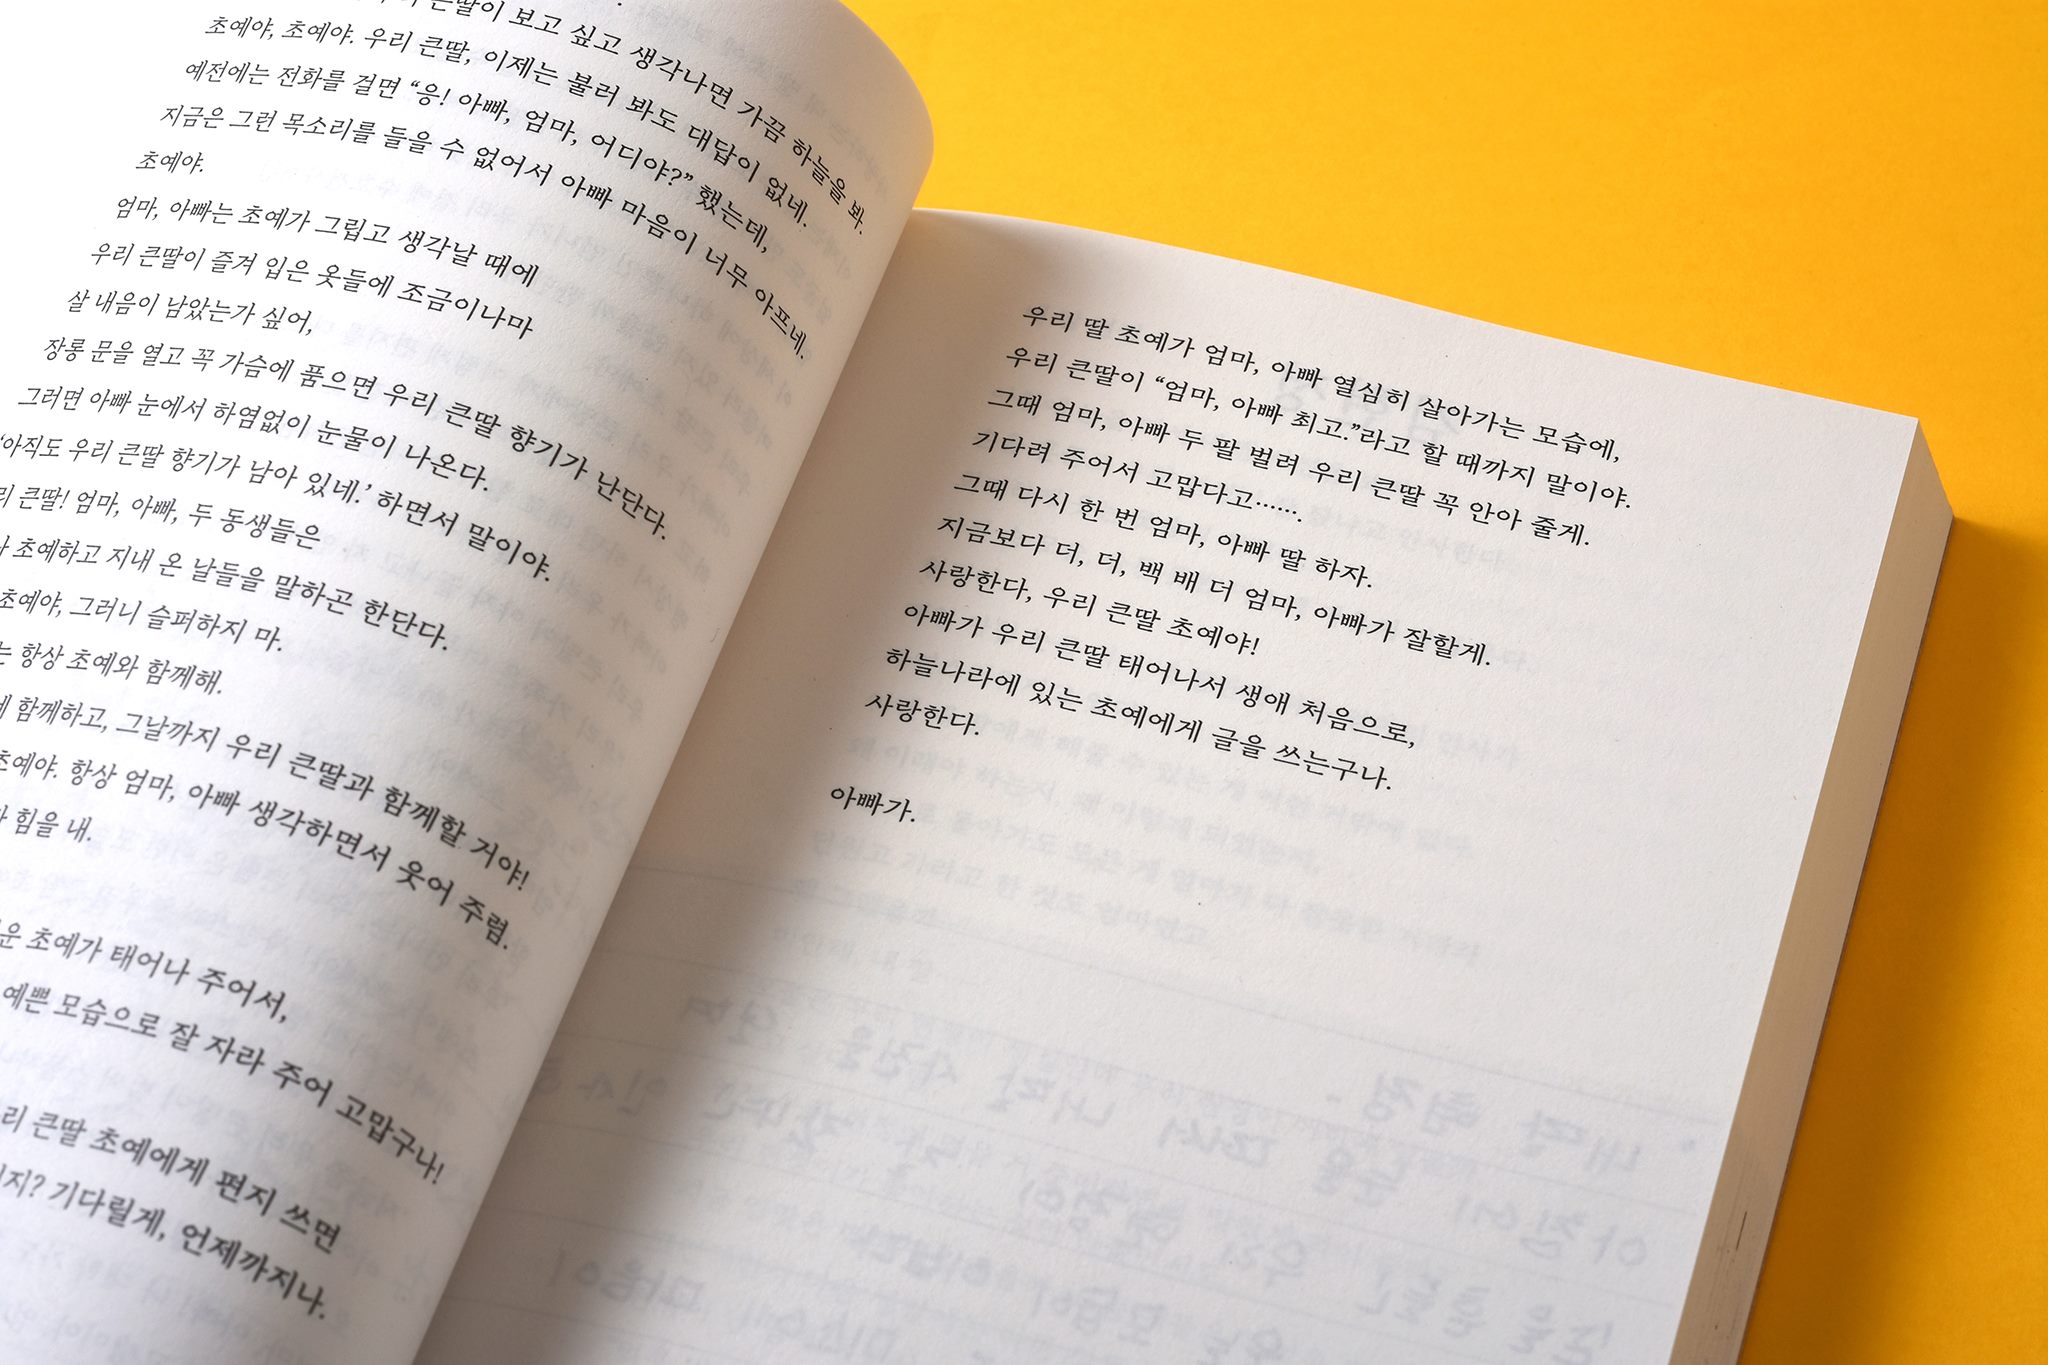 큰딸이 보고 싶고 생각나면 가끔 하늘을 봐.
초예야, 초예야. 우리 큰딸, 이제는 불러 봐도 대답이 없네.
예전에는 전화를 걸면 “응! 아빠, 엄마, 어디야?” 했는데,
지금은 그런 목소리를 들을 수 없어서 아빠 마음이 너무 아프네.
초예야.
엄마, 아빠는 초예가 그립고 생각날 때에
우리 큰딸이 즐겨 입은 옷들에 조금이나마
살 내음이 남았는가 싶어,
장롱 문을 열고 꼭 가슴에 품으면 우리 큰딸 향기가 난단다.
그러면 아빠 눈에서 하염없이 눈물이 나온다.
‘아직도 우리 큰딸 향기가 남아 있네.’ 하면서 말이야.
큰딸! 엄마, 아빠, 두 동생들은
초예하고 지내 온 날들을 말하곤 한단다.
초예야, 그러니 슬퍼하지 마.
항상 초예와 함께해.
함께하고, 그날까지 우리 큰딸과 함께할 거야!
초예야. 항상 엄마, 아빠 생각하면서 웃어 주렴.
힘을 내.
초예가 태어나 주어서,
예쁜 모습으로 잘 자라 주어 고맙구나!
큰딸 초예에게 편지 쓰면
기다릴게, 언제까지나.
우리 딸 초예가 엄마, 아빠 열심히 살아가는 모습에,
우리 큰딸이 “엄마, 아빠 최고.”라고 할 때까지 말이야.
그때 엄마, 아빠 두 팔 벌려 우리 큰딸 꼭 안아 줄게.
기다려 주어서 고맙다고…….
그때 다시 한 번 엄마, 아빠 딸 하자.
지금보다 더, 더, 백 배 더 엄마, 아빠가 잘할게.
사랑한다, 우리 큰딸 초예야!
아빠가 우리 큰딸 태어나서 생애 처음으로,
하늘나라에 있는 초예에게 글을 쓰는구나.
사랑한다.
아빠가.